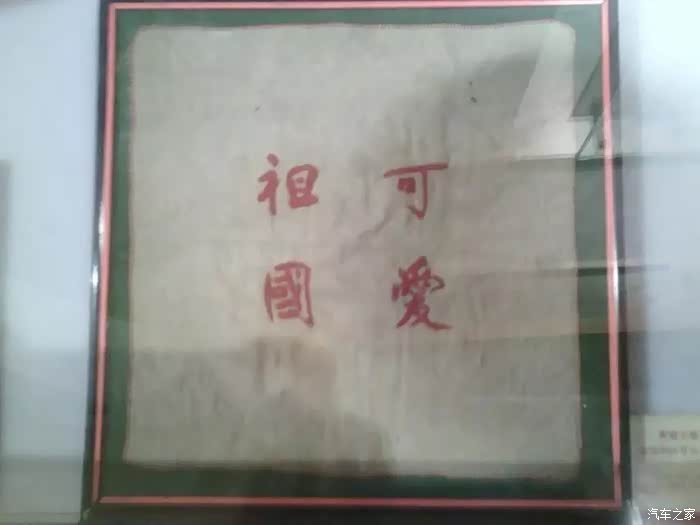 可愛
祖國
汽车之家